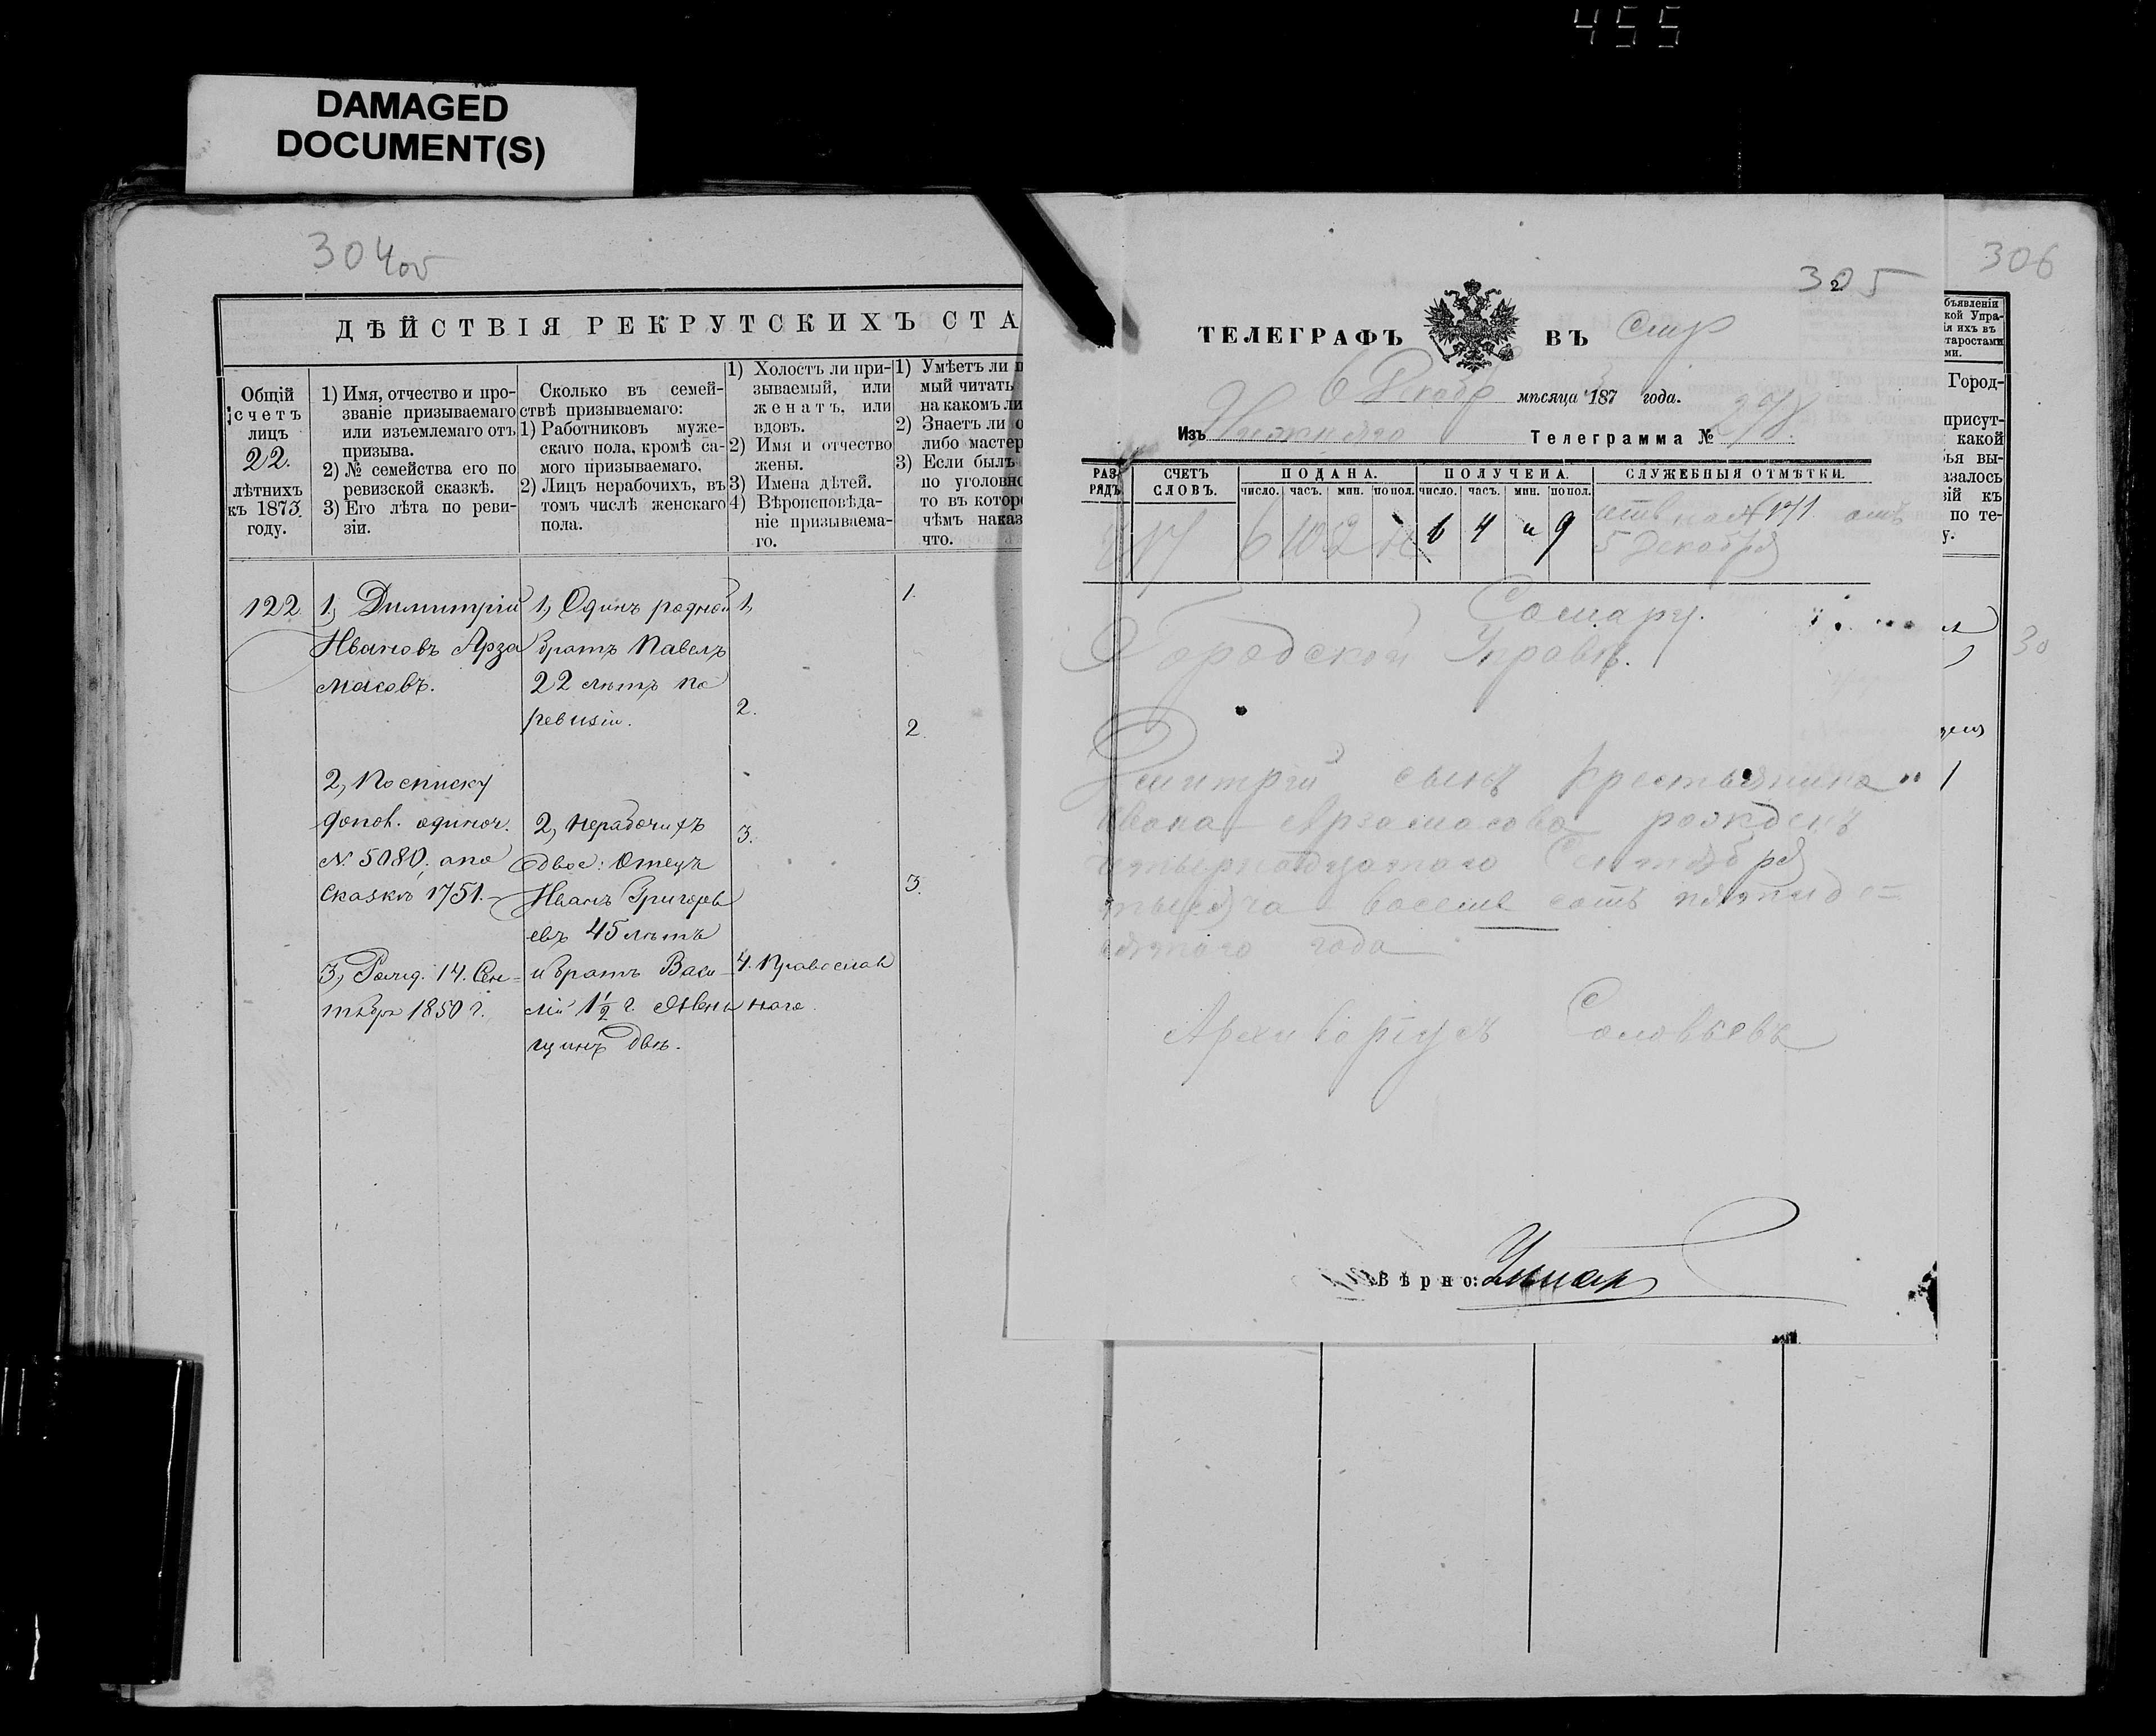 455
DAMAGED
DOCUMENT(S)
304об
ДѢЙСТВІЯ РЕКРУТСКИХЪ СТА
Общій
счетъ
лицъ
22.
лѣтнихъ
къ 1873.
году.
1) Имя, отчество и про-
званіе призываемаго
или изъемлемаго отъ
призыва.
2) № семейства его по
ревизской сказкѣ.
3) Его лѣта по реви-
зіи.
Сколько въ семей-
ствѣ призываемаго:
1) Работниковъ муже-
скаго пола, кромѣ са-
мого призываемаго.
2) Лицъ нерабочихъ, въ
томъ числѣ женскаго
пола.
1) Холостъ ли при-
зываемый, или
женатъ, или
вдовъ.
2) Имя и отчество
жены.
3) Имена дѣтей.
4) Вѣроисповѣда-
ніе призываема-
го.
1) Умѣетъ ли п
мый читать
на какомъ ли
2) Знаетъ ли о
либо мастер
3) Если былъ
по уголовно
то въ котор
чѣмъ наказ
что.
122
1, Димитрій
Ивановъ Арза
масовъ.
2, По списку
допол. одиноч.
№ 5080, а по
сказкѣ 1751.
3, Рожд. 14. Сен-
тября 1850 г.
1, Одинъ родной
братъ Павелъ
22 лѣтъ по
ревизіи.
2, Нерабочихъ
двое: Отецъ
Иванъ Григорь
евъ 45 лѣтъ
и братъ Васи-
лій 1½ г. Жен
щинъ двѣ.
1,
2.
3.
4. Православ
наго.
1.
2.
3.
305
ТЕЛЕГРАФЪ ВЪ Смр
6 Декабр мѣсяца 187 года.
Изъ Нижняго Телеграмма №
РАЗ-
РЯДЪ
СЧЕТЪ
СЛОВЪ.
ПОДАНА.
число. часъ. мин. по пол.
ПОЛУЧЕНА.
число. часъ. мин. по пол.
СЛУЖЕБНЫЯ ОТМѢТКИ.
17 6 10 2 6 4 9
171 отъ
5 Декабря
Самару.
Городской Управѣ.
Дмитрій сынъ крестьянина
Ивана Арзамасова рожденъ
четырнадцатаго Сентября
тысяча восемь сотъ пятиде-
сятаго года
Архиваріусъ Соловьевъ
Вѣрно:
306
бъявленіи
кой Упра-
ія ихъ въ
таростами
ми.
Город-
присут-
какой
ья вы-
азалось
ій къ
по те-
у.
30